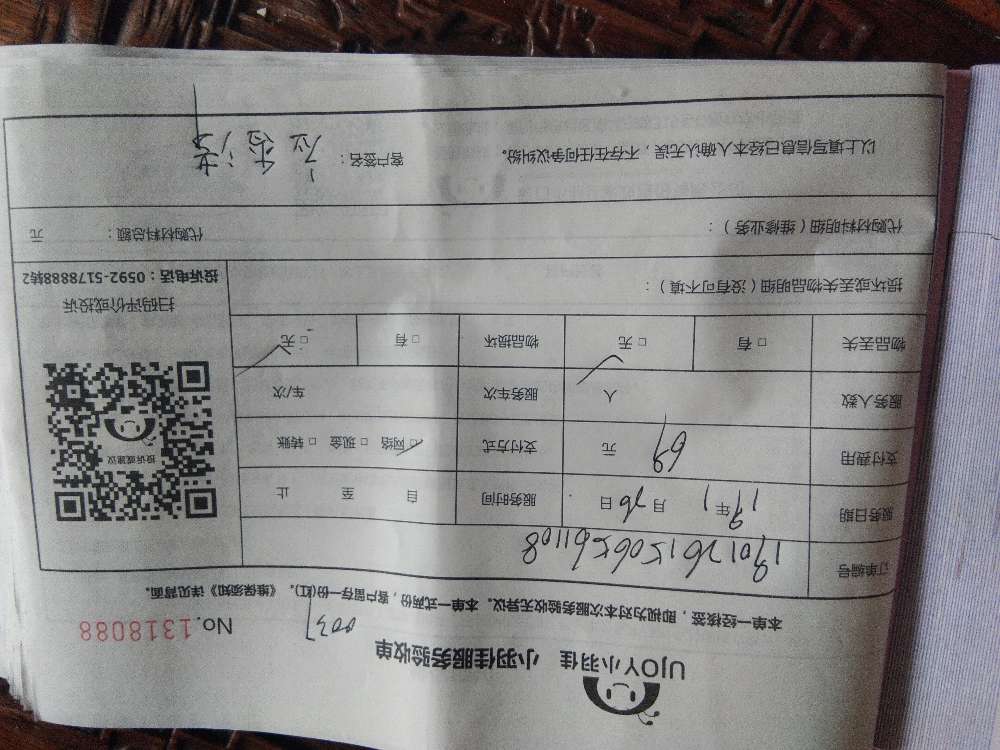 UJOY小羽佳 小羽佳服务验收单
0037 No.1318088
本单一经核签，即视为对本次服务验收无异议。本单一式两份，客户留存一份(红)。《维保须知》详见背面。
订单编号 190126150656561108
服务日期 19年1月26日 服务时间 自 至 止
支付费用 69 元 支付方式 □网络 □现金 □转账
服务人数 人 服务车次 车/次
物品丢失 □有 □无 物品损坏 □有 □无
投诉或建议
扫码评价或投诉
投诉电话：0592-5178888转2
损坏或丢失物品明细（没有可不填）：
代购材料明细（维修业务）： 代购材料总额： 元
以上填写信息已经本人确认无误，不存在任何争议纠纷。 客户签名：